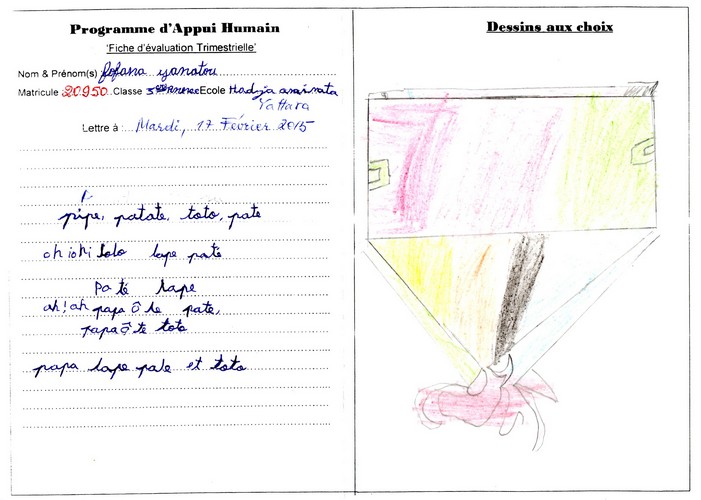 Programme d'Appui Humain
'Fiche d'évaluation Trimestrielle'
Nom & Prénom(s) fofana yanatou
Matricule 20950 Classe 3ème année Ecole Hadja
Yattara
Lettre à : Mardi, 17 Février 2015
pipe, patate, toto, pate
oh ichi lolo tape paté
Pa té tape
ah! ah papa ô te pate,
papa ô te toto
papa tape pate et toto
Dessins aux choix